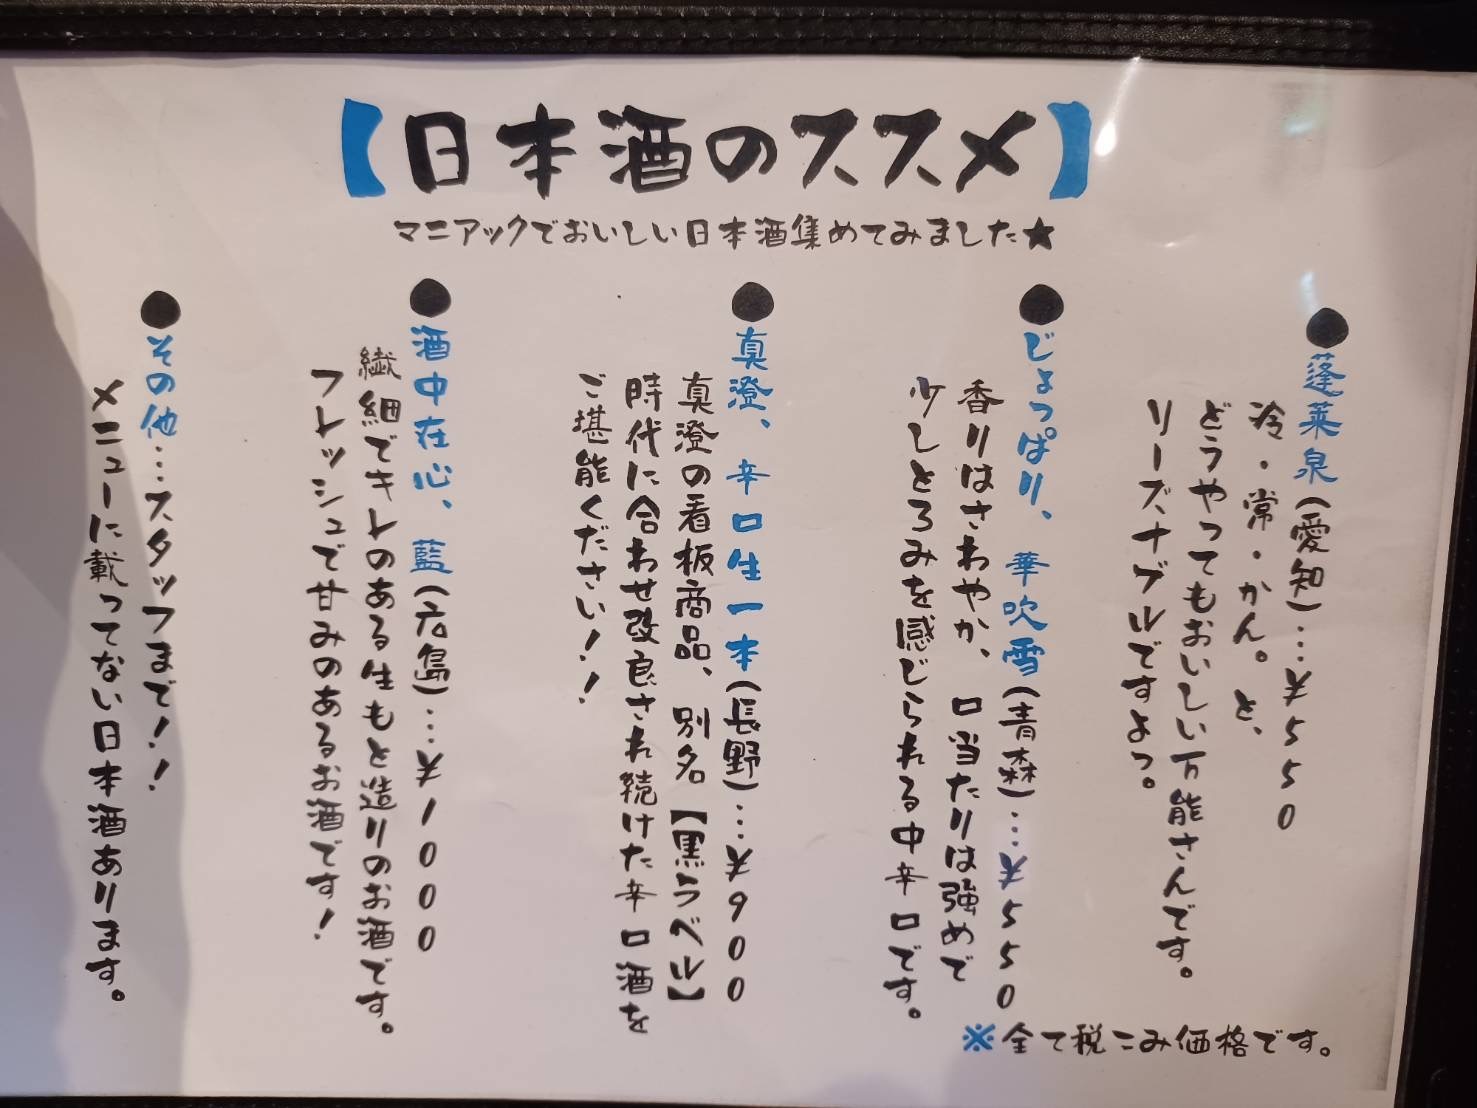 【日本酒のススメ】
マニアックでおいしい日本酒集めてみました★
●蓬莱泉(愛知)…¥550
冷・常・かん。と、
どうやってもおいしい万能さんです。
リーズナブルですよっ。
●じょっぱり、華吹雪(青森)…¥550
香りはさわやか、口当たりは強めで
少しとろみを感じられる中辛口です。
●真澄、辛口生一本(長野)…¥900
真澄の看板商品、別名【黒ラベル】
時代に合わせ改良され続けた辛口酒を
ご堪能ください!!
●酒中在心、藍(広島)…¥1000
繊細でキレのある生もと造りのお酒です。
フレッシュで甘みのあるお酒です!
●その他…スタッフまで!!
メニューに載ってない日本酒あります。
※全て税こみ価格です。